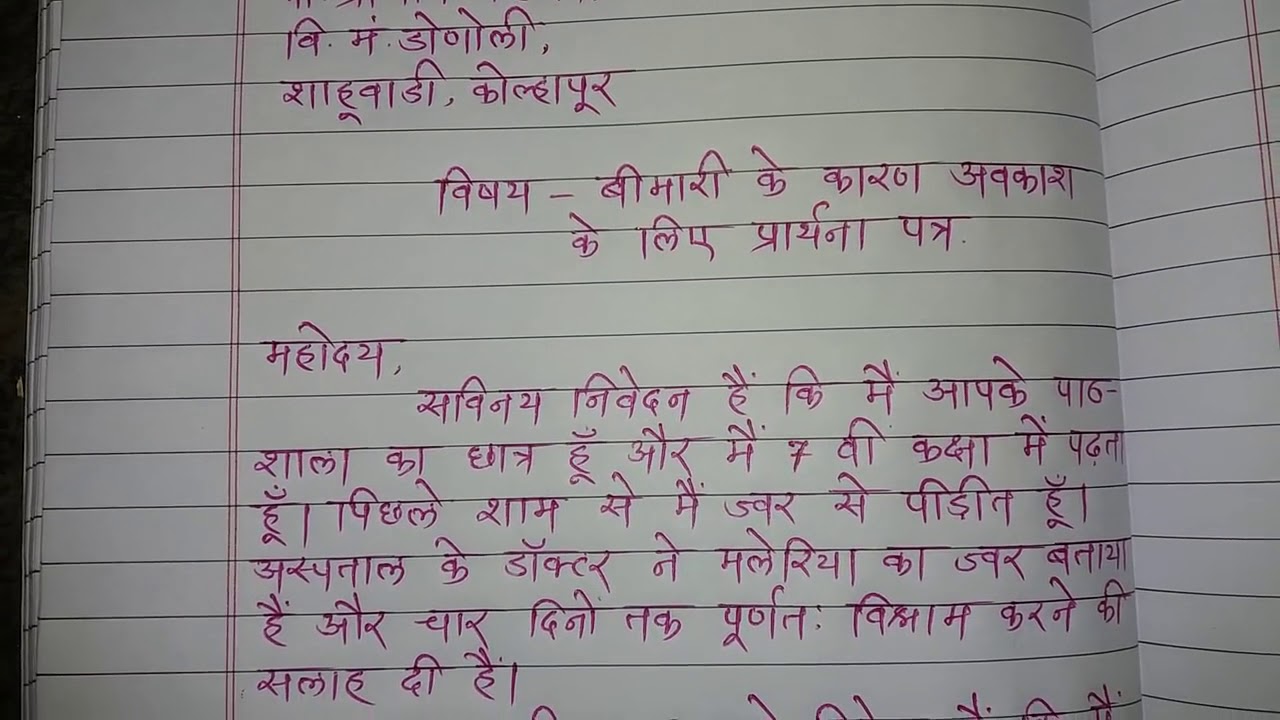 वि. मं. डोणोली,
शाहूवाडी, कोल्हापूर
विषय – बीमारी के कारण अवकाश
के लिए प्रार्थना पत्र.
महोदय,
सविनय निवेदन हैं कि मैं आपके पाठ-
शाला का छात्र हूँ और मैं 7 वी कक्षा में पढ़ता
हूँ। पिछले शाम से मैं ज्वर से पीड़ीत हूँ।
अस्पताल के डॉक्टर ने मलेरिया का ज्वर बताया
हैं और चार दिनों तक पूर्णतः विश्राम करने की
सलाह दी हैं।